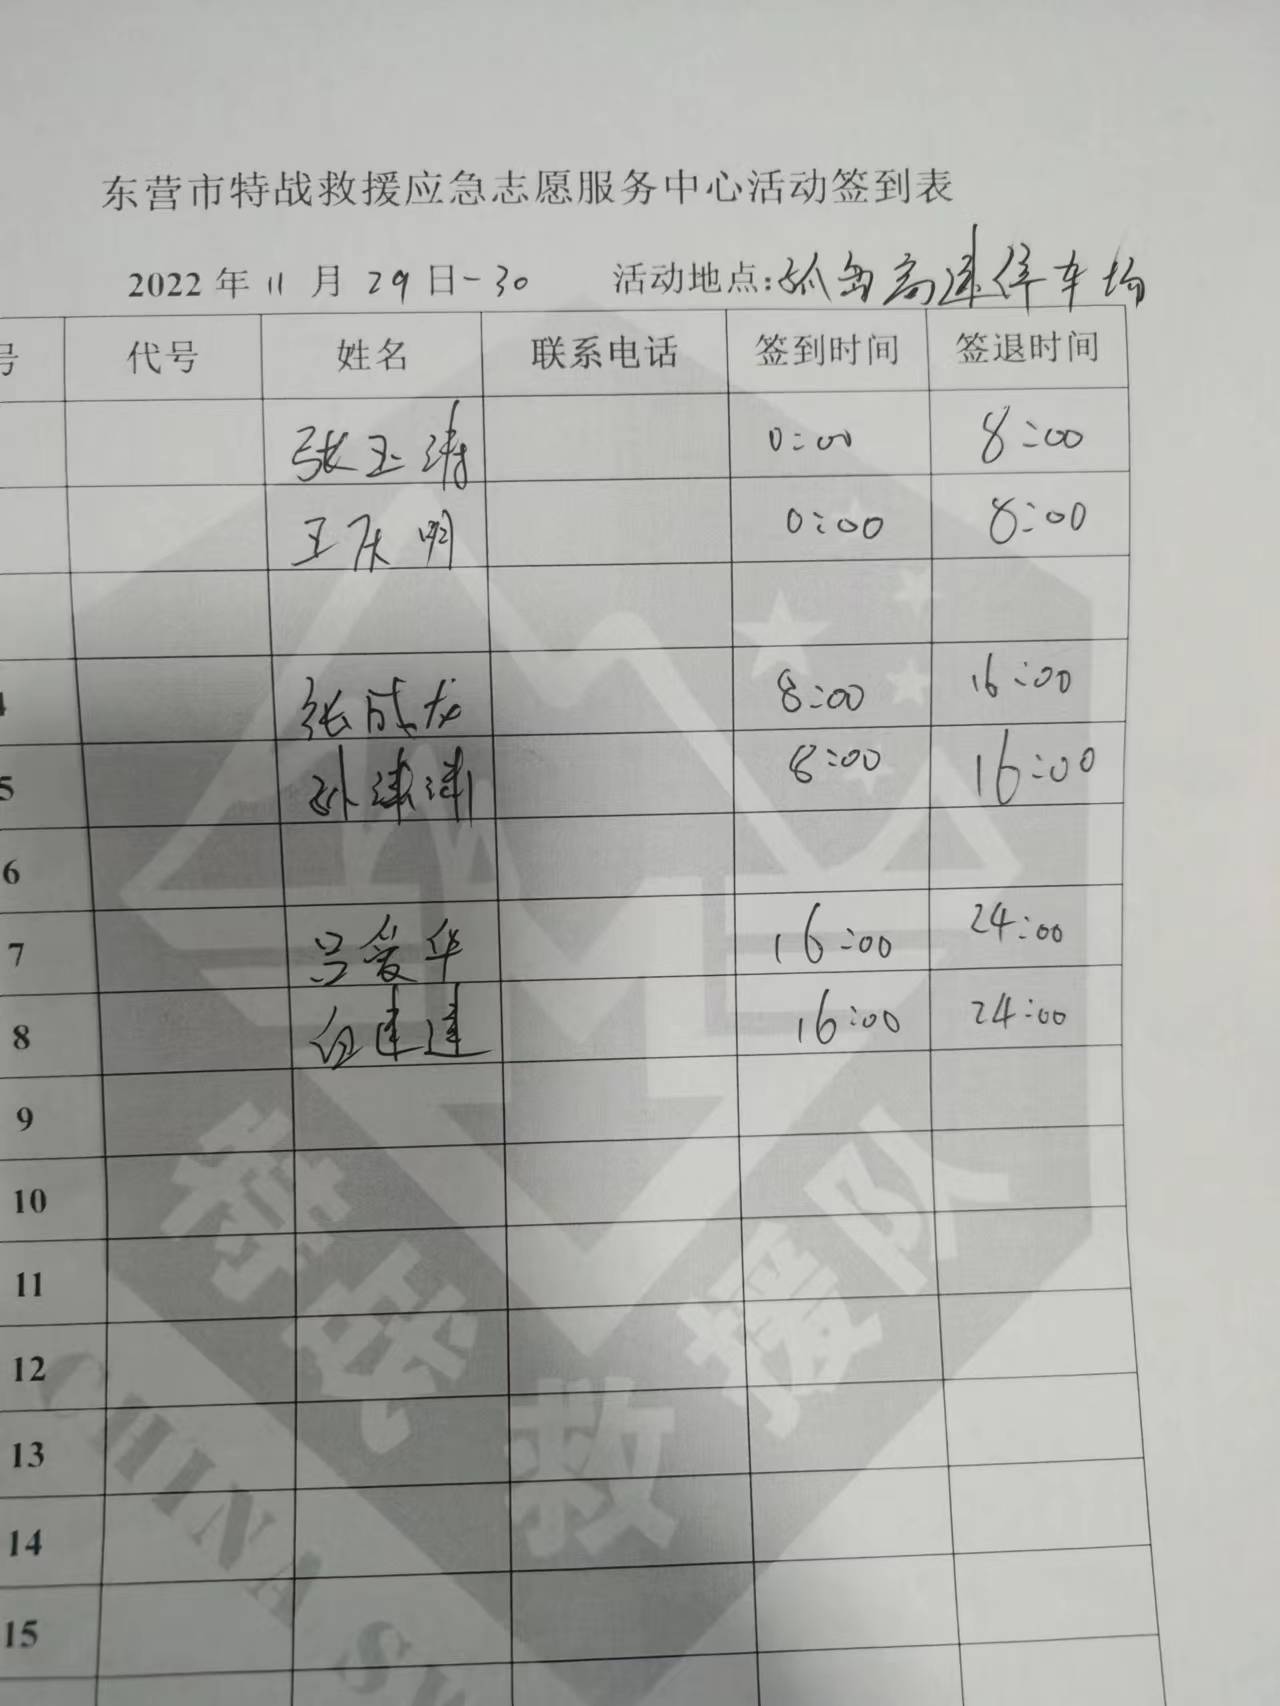 东营市特战救援应急志愿服务中心活动签到表
2022年11月29日-30 活动地点:孤岛高速停车场
号 代号 姓名 联系电话 签到时间 签退时间
张玉涛 0:00 8:00
王庆明 0:00 8:00
4 张成龙 8:00 16:00
5 孙 8:00 16:00
6
7 吕爱华 16:00 24:00
8 白建建 16:00 24:00
9
10
11
12
13
14
15
特战救援队
CHINA SW